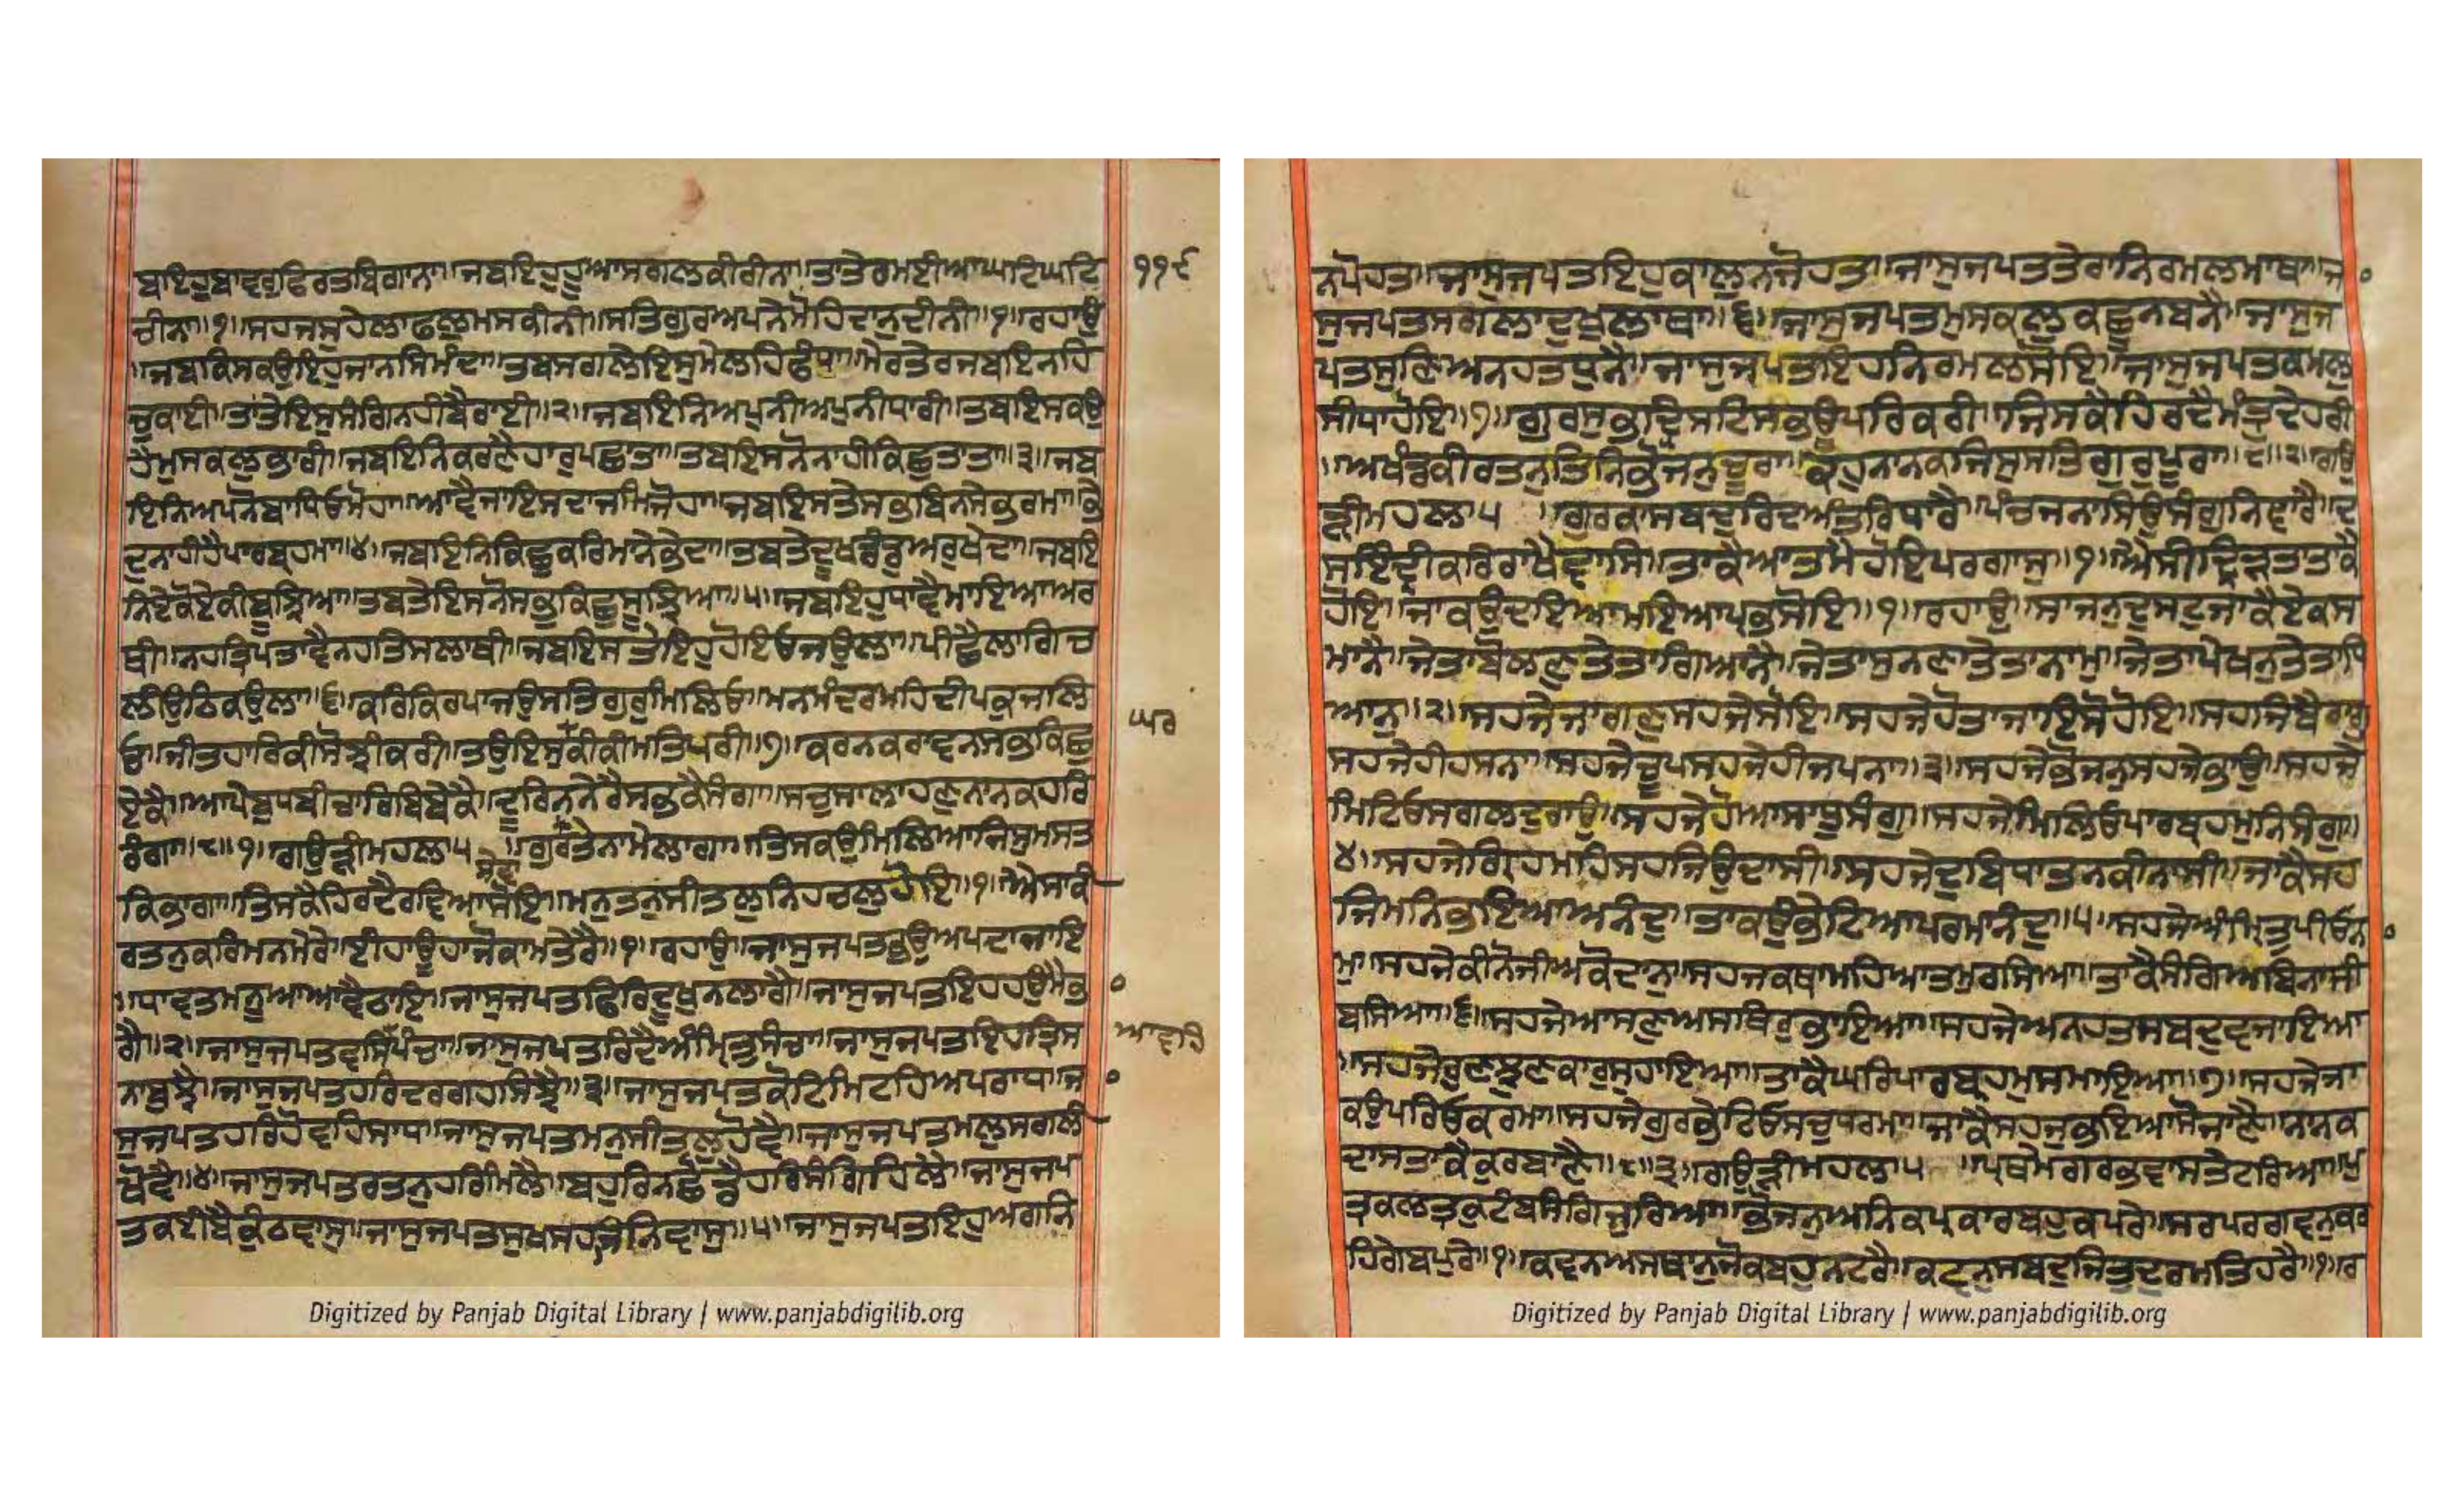 ਬਇਹੁਬਾਵਰੁਫਿਰਤਬਿਗਾਨਾ॥ਜਬਇਹੁਹੂਆਸਗਲਕੀਰੀਨਾ॥ਤਾਤੇਰਮਈਆਘਟਿਘਟਿ ੧੧੬
ਚੀਨਾ॥੧॥ਸਹਜਸੁਹੇਲਾਫਲੁਮਸਕੀਨੀ॥ਸਤਿਗੁਰਅਪਨੇਮੋਹਿਦਾਨੁਦੀਨੀ॥੧॥ਰਹਾਉ
॥ਜਬਕਿਸਕਉਇਹੁਜਾਨਸਿਮੰਦਾ॥ਤਬਸਗਲੇਇਸੁਮੇਲਹਿਫੰਧਾ॥ਮੇਰਤੇਰਜਬਇਨਹਿ
ਚੁਕਾਈ॥ਤਾਤੇਇਸੁਸੰਗਿਨਹੀਬੈਰਾਈ॥੨॥ਜਬਇਨਿਅਪੁਨੀਅਪੁਨੀਧਾਰੀ॥ਤਬਇਸਕਉ
ਹੈਮੁਸਕਲੁਭਾਰੀ॥ਜਬਇਨਿਕਰਣੈਹਾਰੁਪਛਾਤਾ॥ਤਬਇਸਨੋਨਾਹੀਕਿਛੁਤਾਤਾ॥੩॥ਜਬ
ਇਨਿਅਪਨੋਬਾਧਿਓਮੋਹਾ॥ਆਵੈਜਾਇਸਦਾਜਮਿਜੋਹਾ॥ਜਬਇਸਤੇਸਭਬਿਨਸੇਭਰਮਾ॥ਭੇ
ਦੁਨਾਹੀਹੈਪਾਰਬ੍ਰਹਮਾ॥੪॥ਜਬਇਨਿਕਿਛੁਕਰਿਮਾਨੇਭੇਦਾ॥ਤਬਤੇਦੂਖਡੰਡਅਰੁਖੇਦਾ॥ਜਬਇ
ਨਿਏਕੋਏਕੀਬੂਝਿਆ॥ਤਬਤੇਇਸਨੋਸਭੁਕਿਛੁਸੂਝਿਆ॥੫॥ਜਬਇਹੁਧਾਵੈਮਾਇਆਅਰ
ਥੀ॥ਨਹਤ੍ਰਿਪਤਾਵੈਨਹਤਿਸਲਾਥੀ॥ਜਬਇਸਤੇਇਹੁਹੋਇਓਜਉਲਾ॥ਪੀਛੈਲਾਗਿਚ
ਲੀਉਠਿਕਉਲਾ॥੬॥ਕਰਿਕਿਰਪਾਜਉਸਤਿਗੁਰੁਮਿਲਿਓ॥ਮਨਮੰਦਰਮਹਿਦੀਪਕੁਜਲਿ
ਓ॥ਜੀਤਹਾਰਕੀਸੋਝੀਕਰੀ॥ਤਉਇਸੁਕੀਕੀਮਤਿਪਰੀ॥੭॥ਕਰਨਕਰਾਵਨਸਭੁਕਿਛੁ ਘਰ
ਏਕੈ॥ਆਪੇਬੁਧਬੀਚਾਰਿਬਿਬੇਕੈ॥ਦੂਰਿਨਨੇਰੈਸਭਕੈਸੰਗਾ॥ਸਚੁਸਾਲਾਹਣੁਨਾਨਕਹਰਿ
ਰੰਗਾ॥੮॥੧॥ਗਉੜੀਮਹਲਾ੫॥ਗੁਰਤੇਨਾਮੇਲਾਗਾ॥ਤਿਸਕਉਮਿਲਿਆਜਿਸੁਮਸਤ
ਸੇਵਾ
ਕਿਭਾਗਾ॥ਤਿਸਕੈਹਿਰਦੈਰਵਿਆਸੋਇ॥ਮਨੁਤਨੁਸੀਤਲੁਨਿਹਚਲੁਹੋਇ॥੧॥ਐਸਾਕੀ
ਰਤਨੁਕਰਿਮਨਮੇਰੇ॥ਈਹਾਊਹਾਜੋਕਾਮਤੇਰੈ॥੧॥ਰਹਾਉ॥ਜਾਸੁਜਪਤਭਉਅਪਦਾਜਾਇ
॥ਧਾਵਤਮਨੂਆਆਵੈਠਾਇ॥ਜਾਸੁਜਪਤਫਿਰਿਦੂਖੁਨਲਾਗੈ॥ਜਾਸੁਜਪਤਇਹਹਉਮੈਭਾ
ਗੈ॥੨॥ਜਾਸੁਜਪਤਵਸਿਪੰਚਾ॥ਜਾਸੁਜਪਤਰਿਦੈਅੰਮ੍ਰਿਤੁਸੰਚਾ॥ਜਾਸੁਜਪਤਇਹਤ੍ਰਿਸ ਆਵਹਿ
ਨਾਬੁਝੈ॥ਜਾਸੁਜਪਤਹਰਿਦਰਗਹਸਿਝੈ॥੩॥ਜਾਸੁਜਪਤਕੋਟਿਮਿਟਹਿਅਪਰਾਧ॥ਜਾ
ਸੁਜਪਤਹਰਿਹੋਵਹਿਸਾਧ॥ਜਾਸੁਜਪਤਮਨੁਸੀਤਲੁਹੋਵੈ॥ਜਾਸੁਜਪਤਮਲੁਸਗਲੀ
ਖੋਵੈ॥੪॥ਜਾਸੁਜਪਤਰਤਨੁਹਰਿਮਿਲੈ॥ਬਹੁਰਿਨਛੋਡੈਹਰਿਸੰਗਿਹਿਲੈ॥ਜਾਸੁਜਪ
ਤਕਈਬੈਕੁੰਠਵਾਸੁ॥ਜਾਸੁਜਪਤਸੁਖਸਹਜਿਨਿਵਾਸੁ॥੫॥ਜਾਸੁਜਪਤਇਹੁਅਗਨਿ
ਨਪੋਹਤ॥ਜਾਸੁਜਪਤਇਹੁਕਾਲੁਨਜੋਹਤ॥ਜਾਸੁਜਪਤਤੇਰਾਨਿਰਮਲਮਾਥਾ॥ਜਾ
ਸੁਜਪਤਸਗਲਾਦੁਖੁਲਾਥਾ॥੬॥ਜਾਸੁਜਪਤਮੁਸਕਲੁਕਛੂਨਬਨੈ॥ਜਾਸੁਜ
ਪਤਸੁਣਿਅਨਹਤਧੁਨੈ॥ਜਾਸੁਜਪਤਇਹਨਿਰਮਲਸੋਇ॥ਜਾਸੁਜਪਤਕਮਲੁ
ਸੀਧਾਹੋਇ॥੭॥ਗੁਰਸੁਭਦ੍ਰਿਸਟਿਸਭਊਪਰਿਕਰੀ॥ਜਿਸਕੈਹਿਰਦੈਮੰਤ੍ਰੁਦੇਹਰੀ
॥ਅਖੰਡਕੀਰਤਨੁਤਿਨਿਭੋਜਨੁਚੂਰਾ॥ਕਹੁਨਾਨਕਜਿਸੁਸਤਿਗੁਰੁਪੂਰਾ॥੮॥੨॥ਗਉ
ੜੀਮਹਲਾ੫॥ਗੁਰਕਾਸਬਦੁਰਿਦਅੰਤਰਿਧਾਰੈ॥ਪੰਚਜਨਾਸਿਉਸੰਗੁਨਿਵਾਰੈ॥ਦ
ਸਇੰਦ੍ਰੀਕਰਿਰਾਖੈਵਾਸਿ॥ਤਾਕੈਆਤਮੈਹੋਇਪਰਗਾਸੁ॥੧॥ਐਸੀਦ੍ਰਿੜਤਾਤਾਕੈ
ਹੋਇ॥ਜਾਕਉਦਇਆਮਇਆਪ੍ਰਭਸੋਇ॥੧॥ਰਹਾਉ॥ਸਾਜਨੁਦੁਸਟੁਜਾਕੈਏਕਸ
ਮਾਨੈ॥ਜੇਤਾਬੋਲਣੁਤੇਤਾਗਿਆਨੈ॥ਜੇਤਾਸੁਨਣਾਤੇਤਾਨਾਮੁ॥ਜੇਤਾਪੇਖਨੁਤੇਤਾਧਿ
ਆਨੁ॥੨॥ਸਹਜੇਜਾਗਣੁਸਹਜੇਸੋਇ॥ਸਹਜੇਹੋਤਾਜਾਇਸੋਹੋਇ॥ਸਹਜਿਬੈਰਾਗੁ
ਸਹਜੇਹੀਹਸਨਾ॥ਸਹਜੇਚੂਪਸਹਜੇਹੀਜਪਨਾ॥੩॥ਸਹਜੇਭੋਜਨੁਸਹਜੇਭਾਉ॥ਸਹਜੇ
ਮਿਟਿਓਸਗਲਦੁਰਾਉ॥ਸਹਜੇਹੋਆਸਾਧੂਸੰਗੁ॥ਸਹਜੇਮਿਲਿਓਪਾਰਬ੍ਰਹਮੁਨਿਸੰਗੁ॥
੪॥ਸਹਜੇਗ੍ਰਿਹਮਹਿਸਹਜਿਉਦਾਸੀ॥ਸਹਜੇਦੁਬਿਧਾਤਨਕੀਨਾਸੀ॥ਜਾਕੈਸਹ
ਜਿਮਨਿਭਇਆਅਨੰਦੁ॥ਤਾਕਉਭੇਟਿਆਪਰਮਾਨੰਦੁ॥੫॥ਸਹਜੇਅੰਮ੍ਰਿਤੁਪੀਓਨਾ
ਮੁ॥ਸਹਜੇਕੀਨੋਜੀਅਕੋਦਾਨੁ॥ਸਹਜਕਥਾਮਹਿਆਤਮੁਰਸਿਆ॥ਤਾਕੈਸੰਗਿਅਬਿਨਾਸੀ
ਬਸਿਆ॥੬॥ਸਹਜੇਆਸਣੁਅਸਥਿਰੁਭਾਇਆ॥ਸਹਜੇਅਨਹਤਸਬਦੁਵਜਾਇਆ
॥ਸਹਜੇਰੁਣਝੁਣਕਾਰੁਸੁਹਾਇਆ॥ਤਾਕੈਘਰਿਪਾਰਬ੍ਰਹਮੁਸਮਾਇਆ॥੭॥ਸਹਜੇਜਾ
ਕਉਪਰਿਓਕਰਮਾ॥ਸਹਜੇਗੁਰਭੇਟਿਓਸਚੁਧਰਮਾ॥ਜਾਕੈਸਹਜੁਭਇਆਸੋਜਾਣੈ॥ਨਾਨਕ
ਦਾਸਤਾਕੈਕੁਰਬਾਣੈ॥੮॥੩॥ਗਉੜੀਮਹਲਾ੫॥ਪ੍ਰਥਮੇਗਰਭਵਾਸਤੇਟਰਿਆ॥ਪੁ
ਤ੍ਰਕਲਤ੍ਰਕੁਟੰਬਸੰਗਿਜੁਰਿਆ॥ਭੋਜਨੁਅਨਿਕਪ੍ਰਕਾਰਬਹੁਕਪਰੇ॥ਸਰਪਰਗਵਨੁਕਰ
ਹਿਗੇਬਪੁਰੇ॥੧॥ਕਵਨੁਅਸਥਾਨੁਜੋਕਬਹੁਨਟਰੈ॥ਕਵਨੁਸਬਦੁਜਿਤੁਦੁਰਮਤਿਹਰੈ॥੧॥ਰ
Digitized by Panjab Digital Library | www.panjabdigilib.org
Digitized by Panjab Digital Library | www.panjabdigilib.org